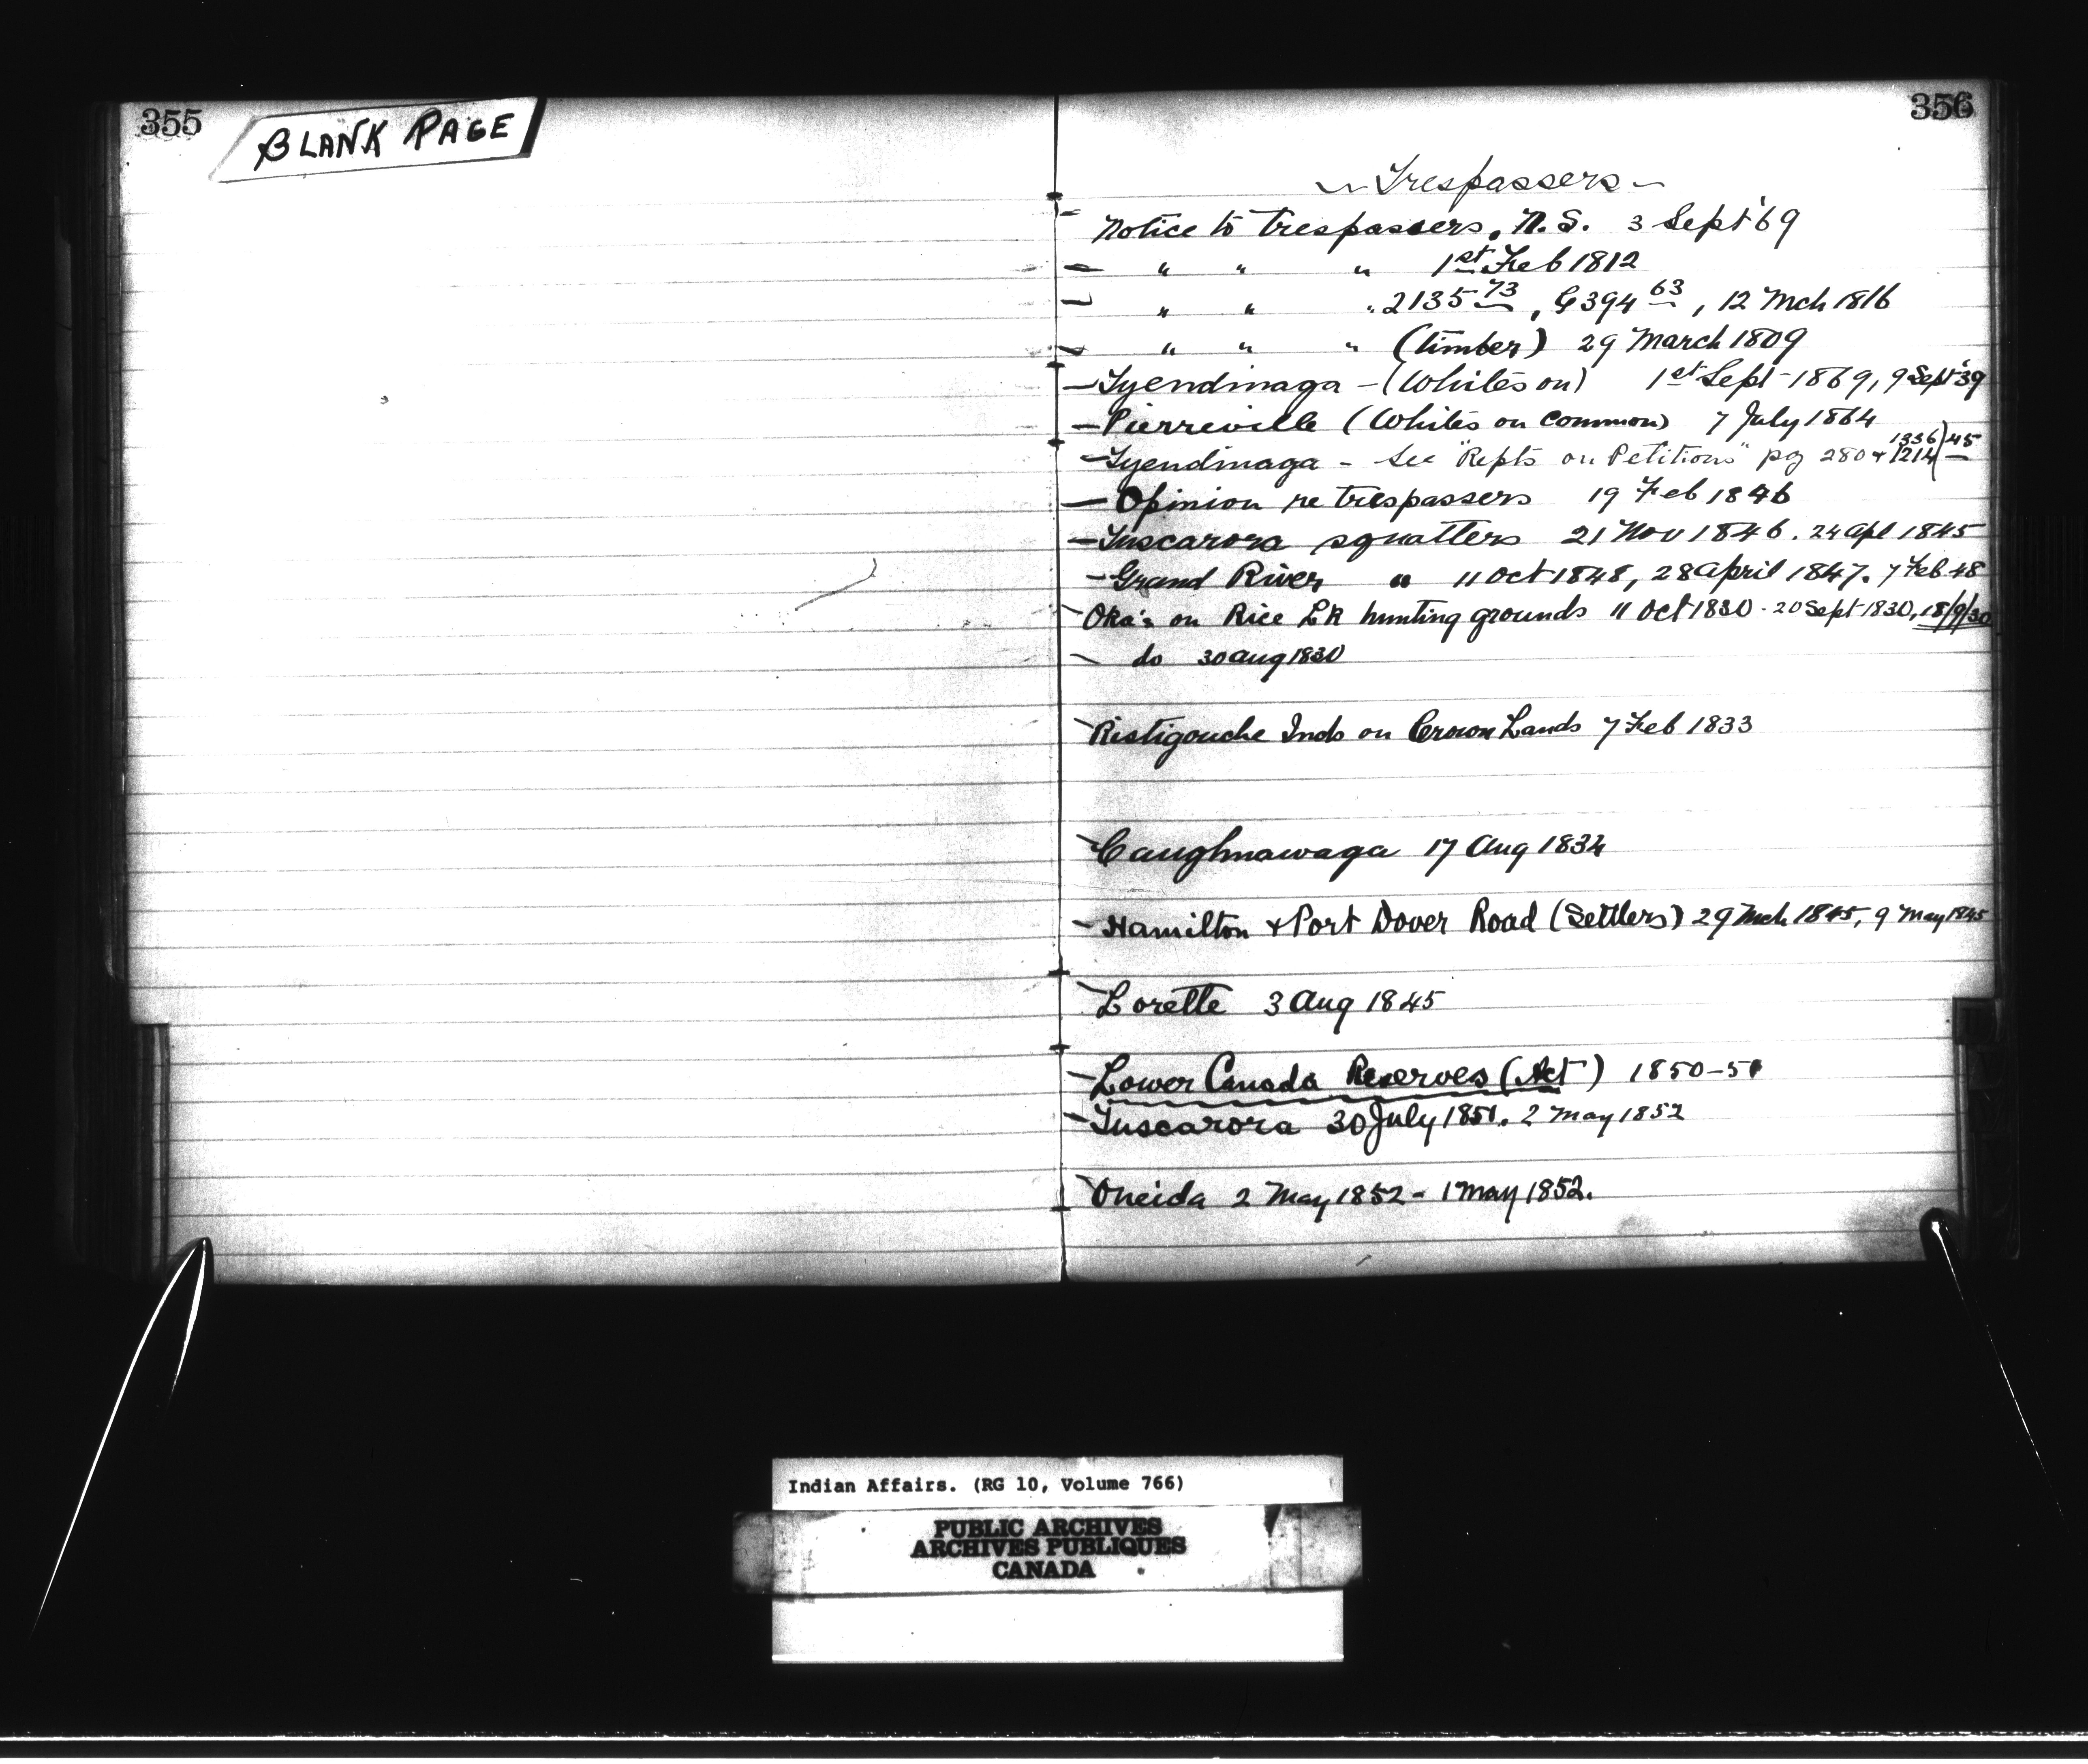 355
BLANK PAGE
356
~ Trespassers ~
- Notice to trespassers, N.S. 3 Sept '69
- " " " 1st Feb 1812
- " " " 2135 73, G394 63, 12 Mch 1816
- " " " (timber) 29 March 1809
- Tyendinaga - (Whites on) 1st Sept - 1869, 9 Sept '39
- Pierreville (Whites on Common) 7 July 1864
- Tyendinaga - See "Repts on Petitions" pg 280 + 1214 1336) 45
- Opinion re trespassers 19 Feb 1846
- Tuscarora squatters 21 Nov 1846. 24 Apl 1845
- Grand River " 11 Oct 1848, 28 April 1847. 7 Feb 48
- Oka's on Rice Lk hunting grounds 11 Oct 1830 - 20 Sept 1830, 18/9/30
- do 30 Aug 1830
- Ristigouche Inds on Crown Lands 7 Feb 1833
- Caughnawaga 17 Aug 1834
- Hamilton & Port Dover Road (Settlers) 29 Mch 1845, 9 May 1845
- Lorette 3 Aug 1845
- Lower Canada Reserves (Act) 1850-51
- Tuscarora 30 July 1851. 2 May 1852
- Oneida 2 May 1852 - 1 May 1852.
Indian Affairs. (RG 10, Volume 766)
PUBLIC ARCHIVES
ARCHIVES PUBLIQUES
CANADA